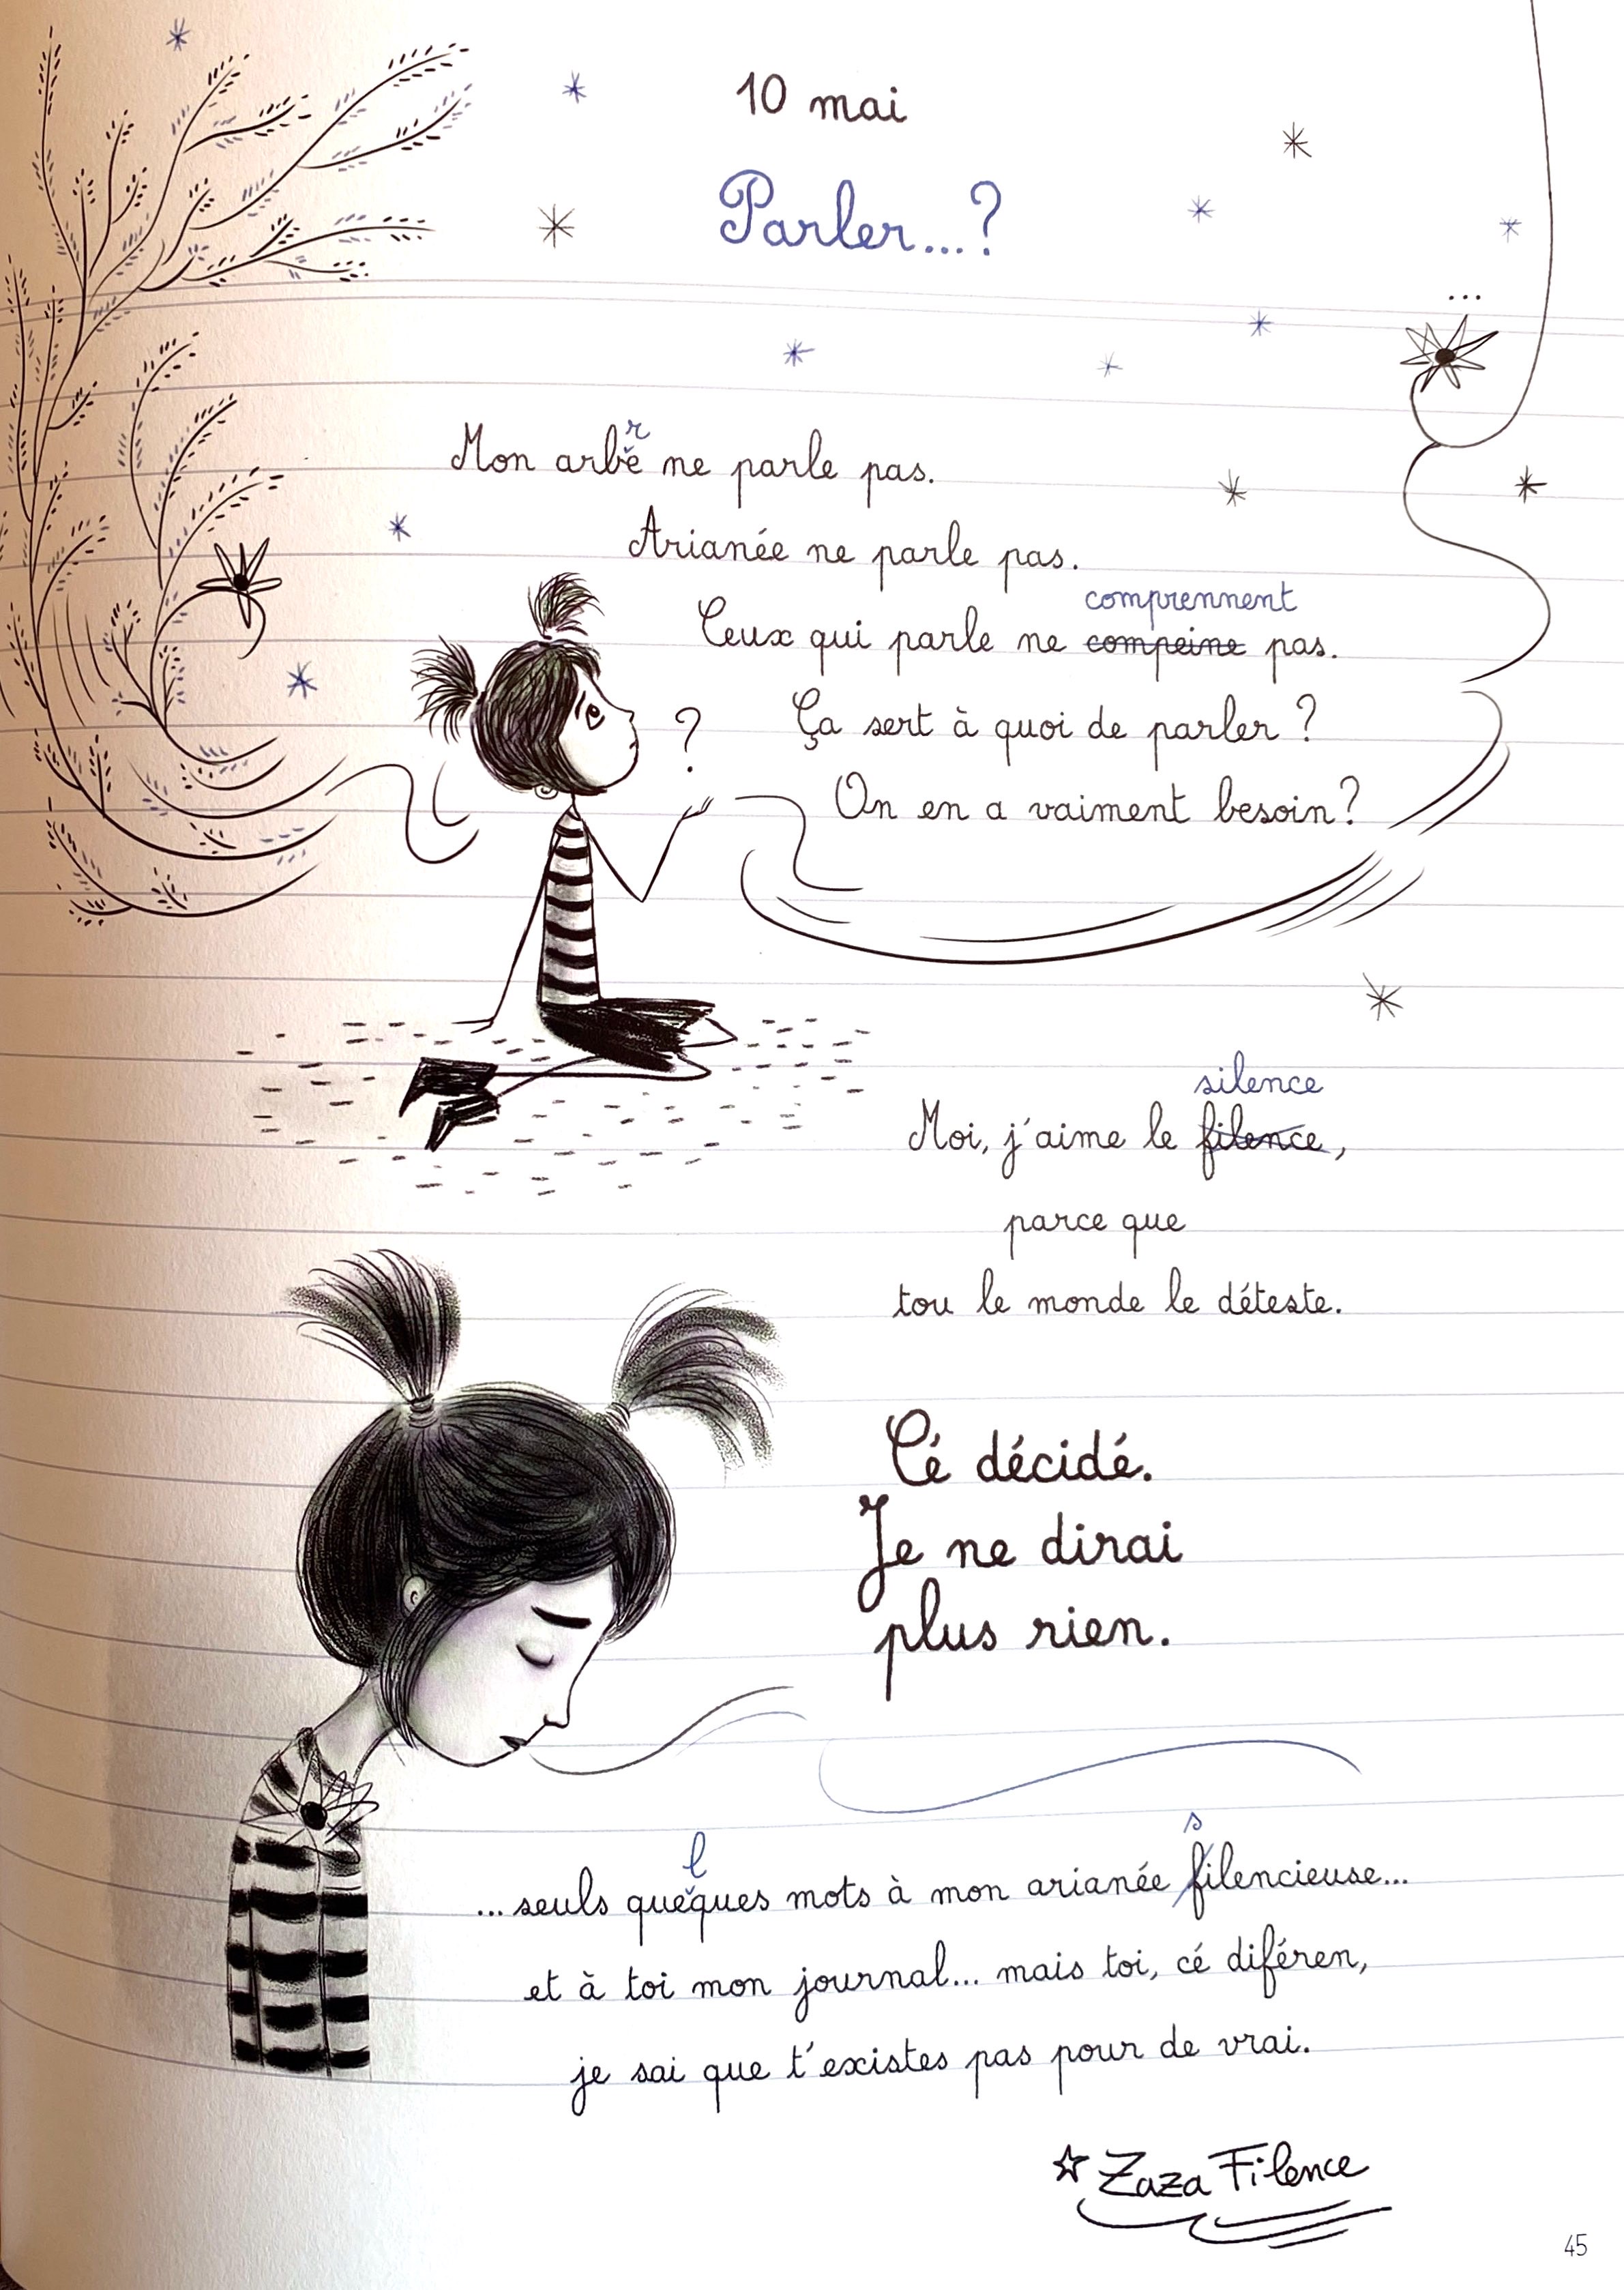 10 mai
Parler...?
...
r
Mon arbe ne parle pas.
Arianée ne parle pas.
comprennent
Ceux qui parle ne compeine pas.
?
Ça sert à quoi de parler ?
On en a vaiment besoin ?
silence
Moi, j'aime le filence,
parce que
tou le monde le déteste.
Cé décidé.
Je ne dirai
plus rien.
l s
... seuls queques mots à mon arianée filencieuse...
et à toi mon journal... mais toi, cé diféren,
je sai que t'existes pas pour de vrai.
☆ Zaza Filence
45